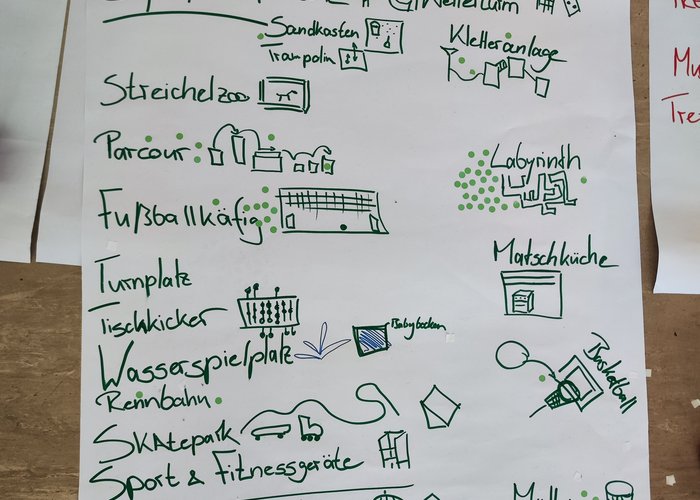 Sandkasten
Trampolin
Kletteranlage
Streichelzoo
Parcour
Labyrinth
Fußballkäfig
Turnplatz
Matschküche
Tischkicker
Wasserspielplatz
Babybecken
Basketball
Rennbahn
SKAtepark
Sport & Fitnessgeräte